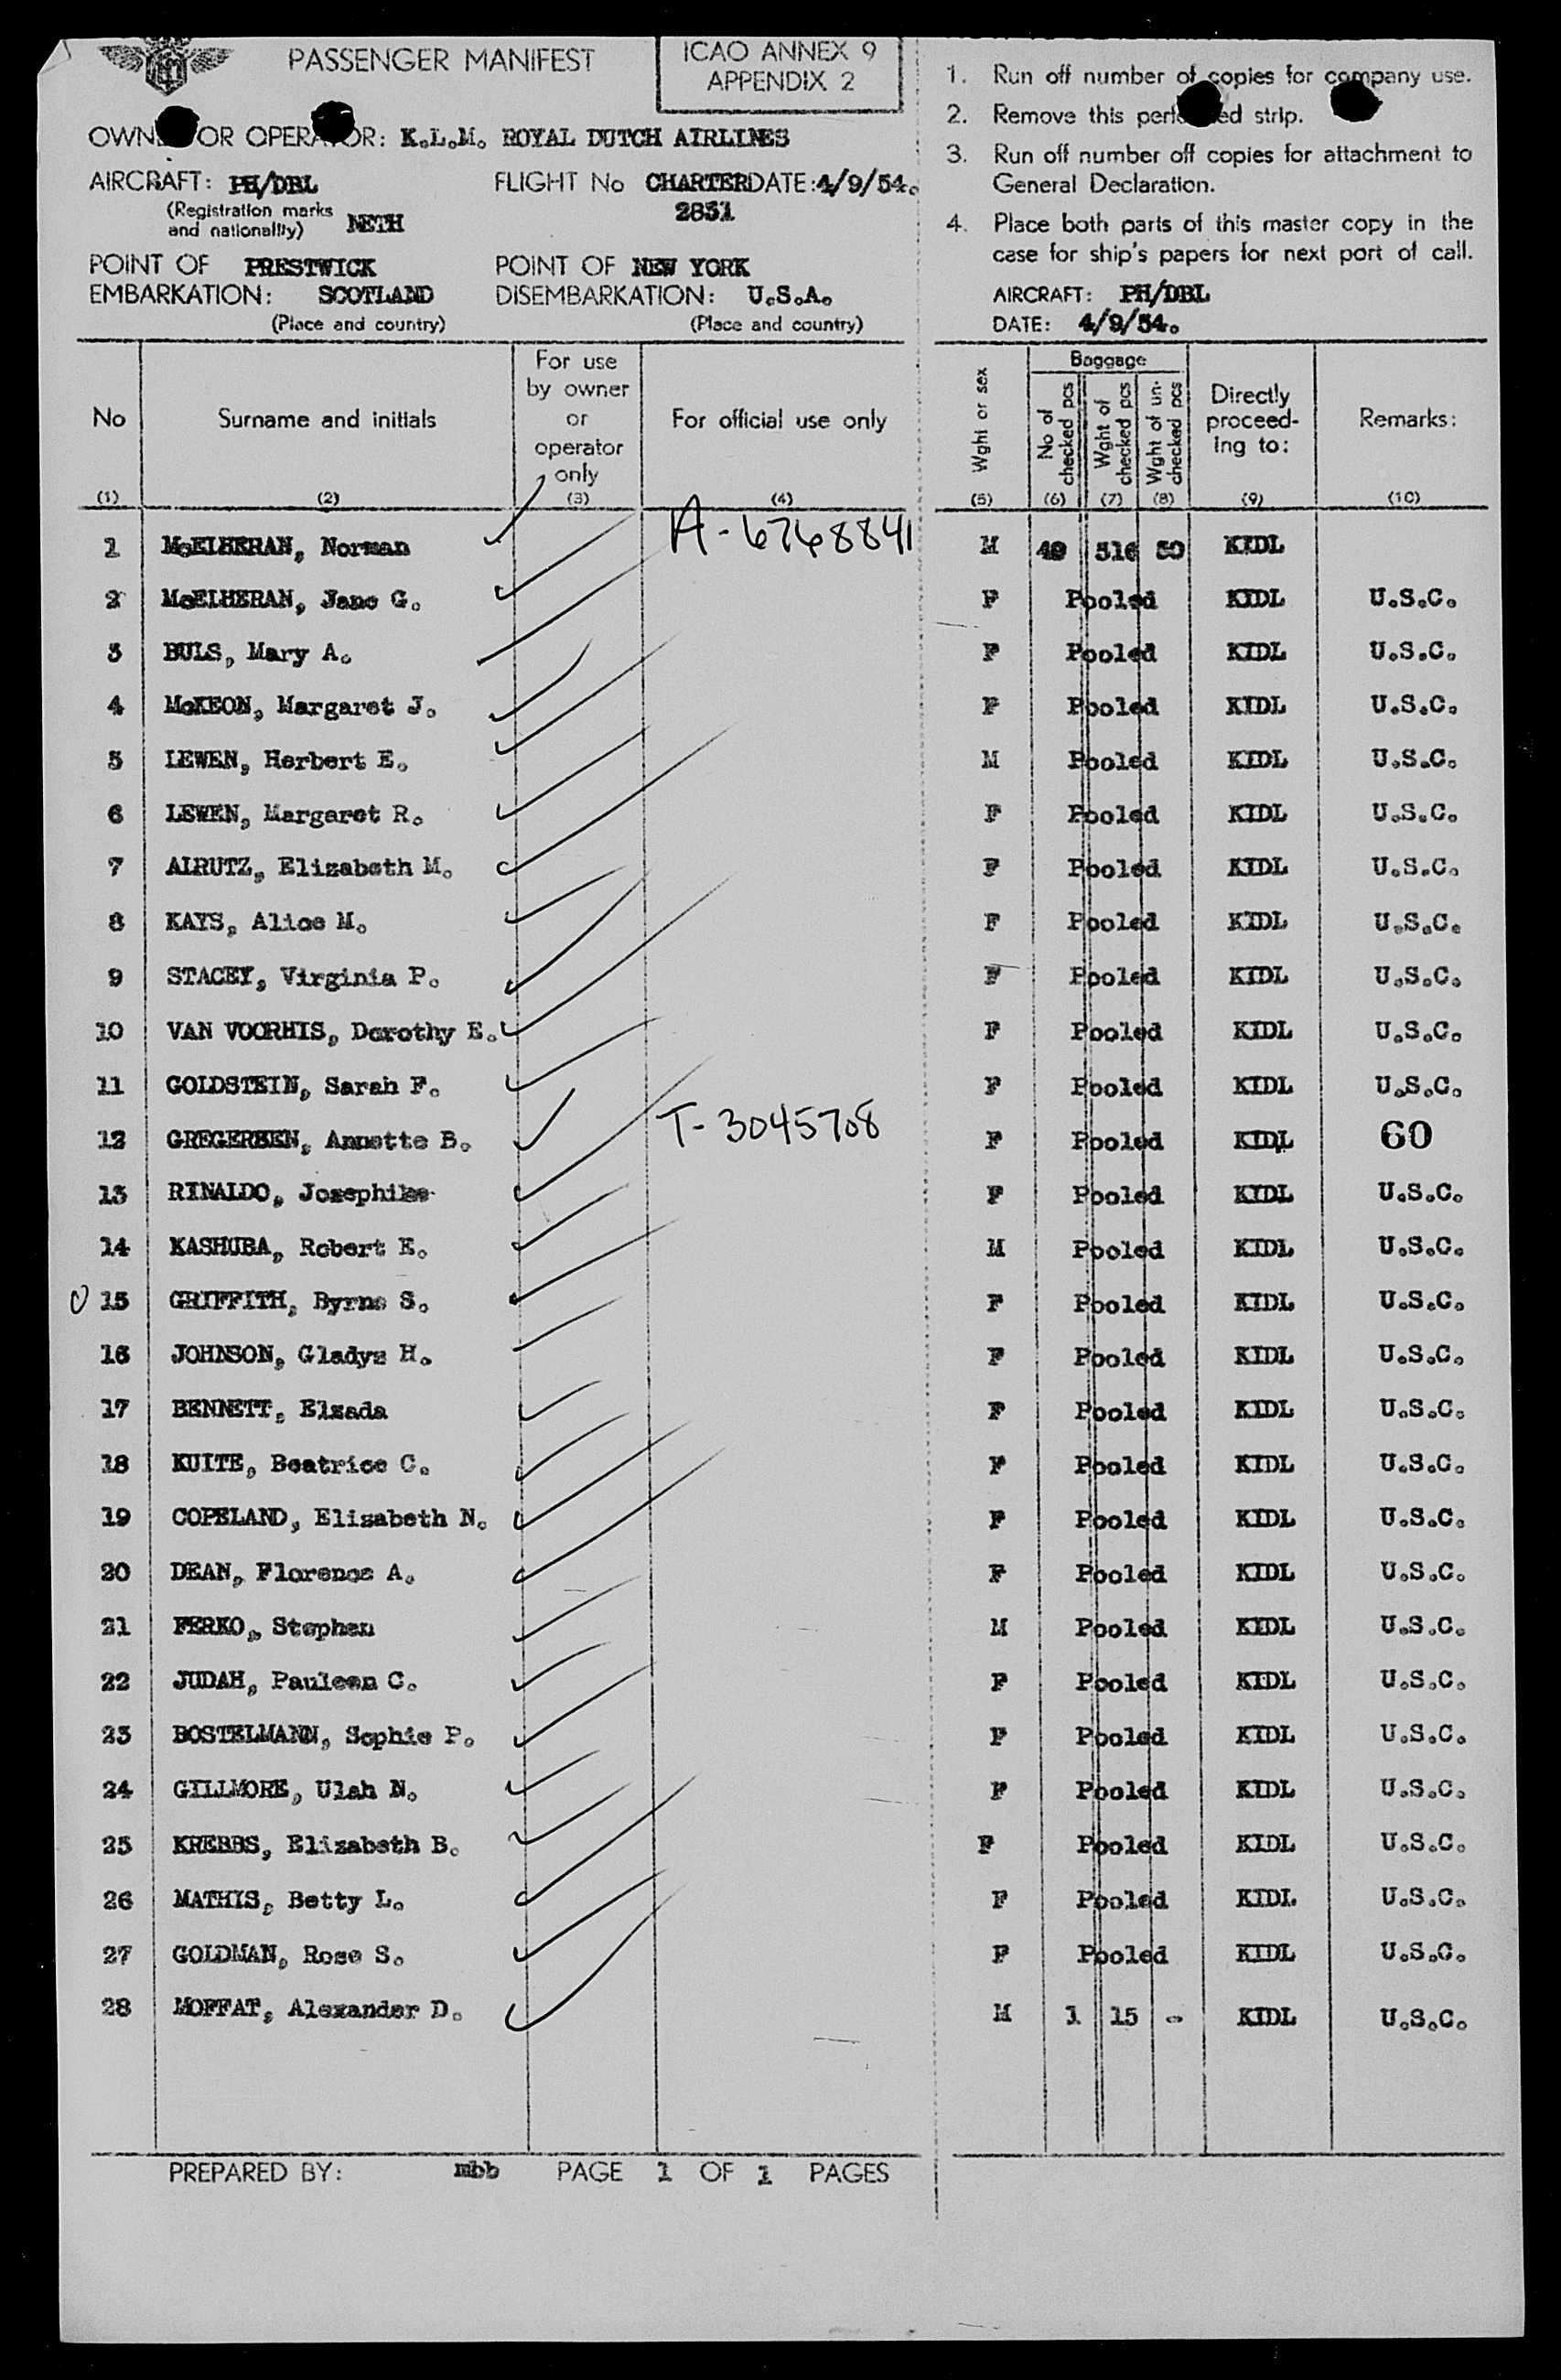 PASSENGER MANIFEST
ICAO ANNEX 9
APPENDIX 2
OR OPERATOR: K.L.M. ROYAL DUTCH AIRLINES
AIRCRAFT: PH/DBL FLIGHT No CHARTER DATE: 4/9/54.
(Registration marks and nationality) NETH 2831
POINT OF PRESTWICK POINT OF NEW YORK
EMBARKATION: SCOTLAND DISEMBARKATION: U.S.A.
(Place and country) (Place and country)
1. Run off number of copies for company use.
2. Remove this strip.
3. Run off number off copies for attachment to
General Declaration.
4. Place both parts of this master copy in the
case for ship's papers for next port of call.
AIRCRAFT: PH/DBL
DATE: 4/9/54.
No Surname and initials For use by owner or operator only For official use only Wght or sex Baggage No of checked pcs Wght of checked pcs Wght of un-checked pcs Directly proceed-ing to: Remarks:
(1) (2) (3) (4) (5) (6) (7) (8) (9) (10)
1 McELHERAN, Norman A-6768841 M 49 516 50 KIDL
2 McELHERAN, Jane G. F Pooled KIDL U.S.C.
3 BULS, Mary A. F Pooled KIDL U.S.C.
4 McKEON, Margaret J. F Pooled KIDL U.S.C.
5 LEWEN, Herbert E. M Pooled KIDL U.S.C.
6 LEWEN, Margaret R. F Pooled KIDL U.S.C.
7 ALRUTZ, Elizabeth M. F Pooled KIDL U.S.C.
8 KAYS, Alice M. F Pooled KIDL U.S.C.
9 STACEY, Virginia P. F Pooled KIDL U.S.C.
10 VAN VOORHIS, Dorothy E. F Pooled KIDL U.S.C.
11 GOLDSTEIN, Sarah F. F Pooled KIDL U.S.C.
12 GREGERSEN, Annette B. T-3045708 F Pooled KIDL 60
13 RINALDO, Josephine F Pooled KIDL U.S.C.
14 KASHUBA, Robert E. M Pooled KIDL U.S.C.
15 GRIFFITH, Byrne S. F Pooled KIDL U.S.C.
16 JOHNSON, Gladys H. F Pooled KIDL U.S.C.
17 BENNETT, Elzada F Pooled KIDL U.S.C.
18 KUITE, Beatrice C. F Pooled KIDL U.S.C.
19 COPELAND, Elizabeth N. F Pooled KIDL U.S.C.
20 DEAN, Florence A. F Pooled KIDL U.S.C.
21 FERKO, Stephen M Pooled KIDL U.S.C.
22 JUDAH, Pauleen C. F Pooled KIDL U.S.C.
23 BOSTELMANN, Sophie P. F Pooled KIDL U.S.C.
24 GILLMORE, Ulah N. F Pooled KIDL U.S.C.
25 KREBBS, Elizabeth B. F Pooled KIDL U.S.C.
26 MATHIS, Betty L. F Pooled KIDL U.S.C.
27 GOLDMAN, Rose S. F Pooled KIDL U.S.C.
28 MOFFAT, Alexander D. M 1 15 - KIDL U.S.C.
PREPARED BY: mbb PAGE 1 OF 1 PAGES